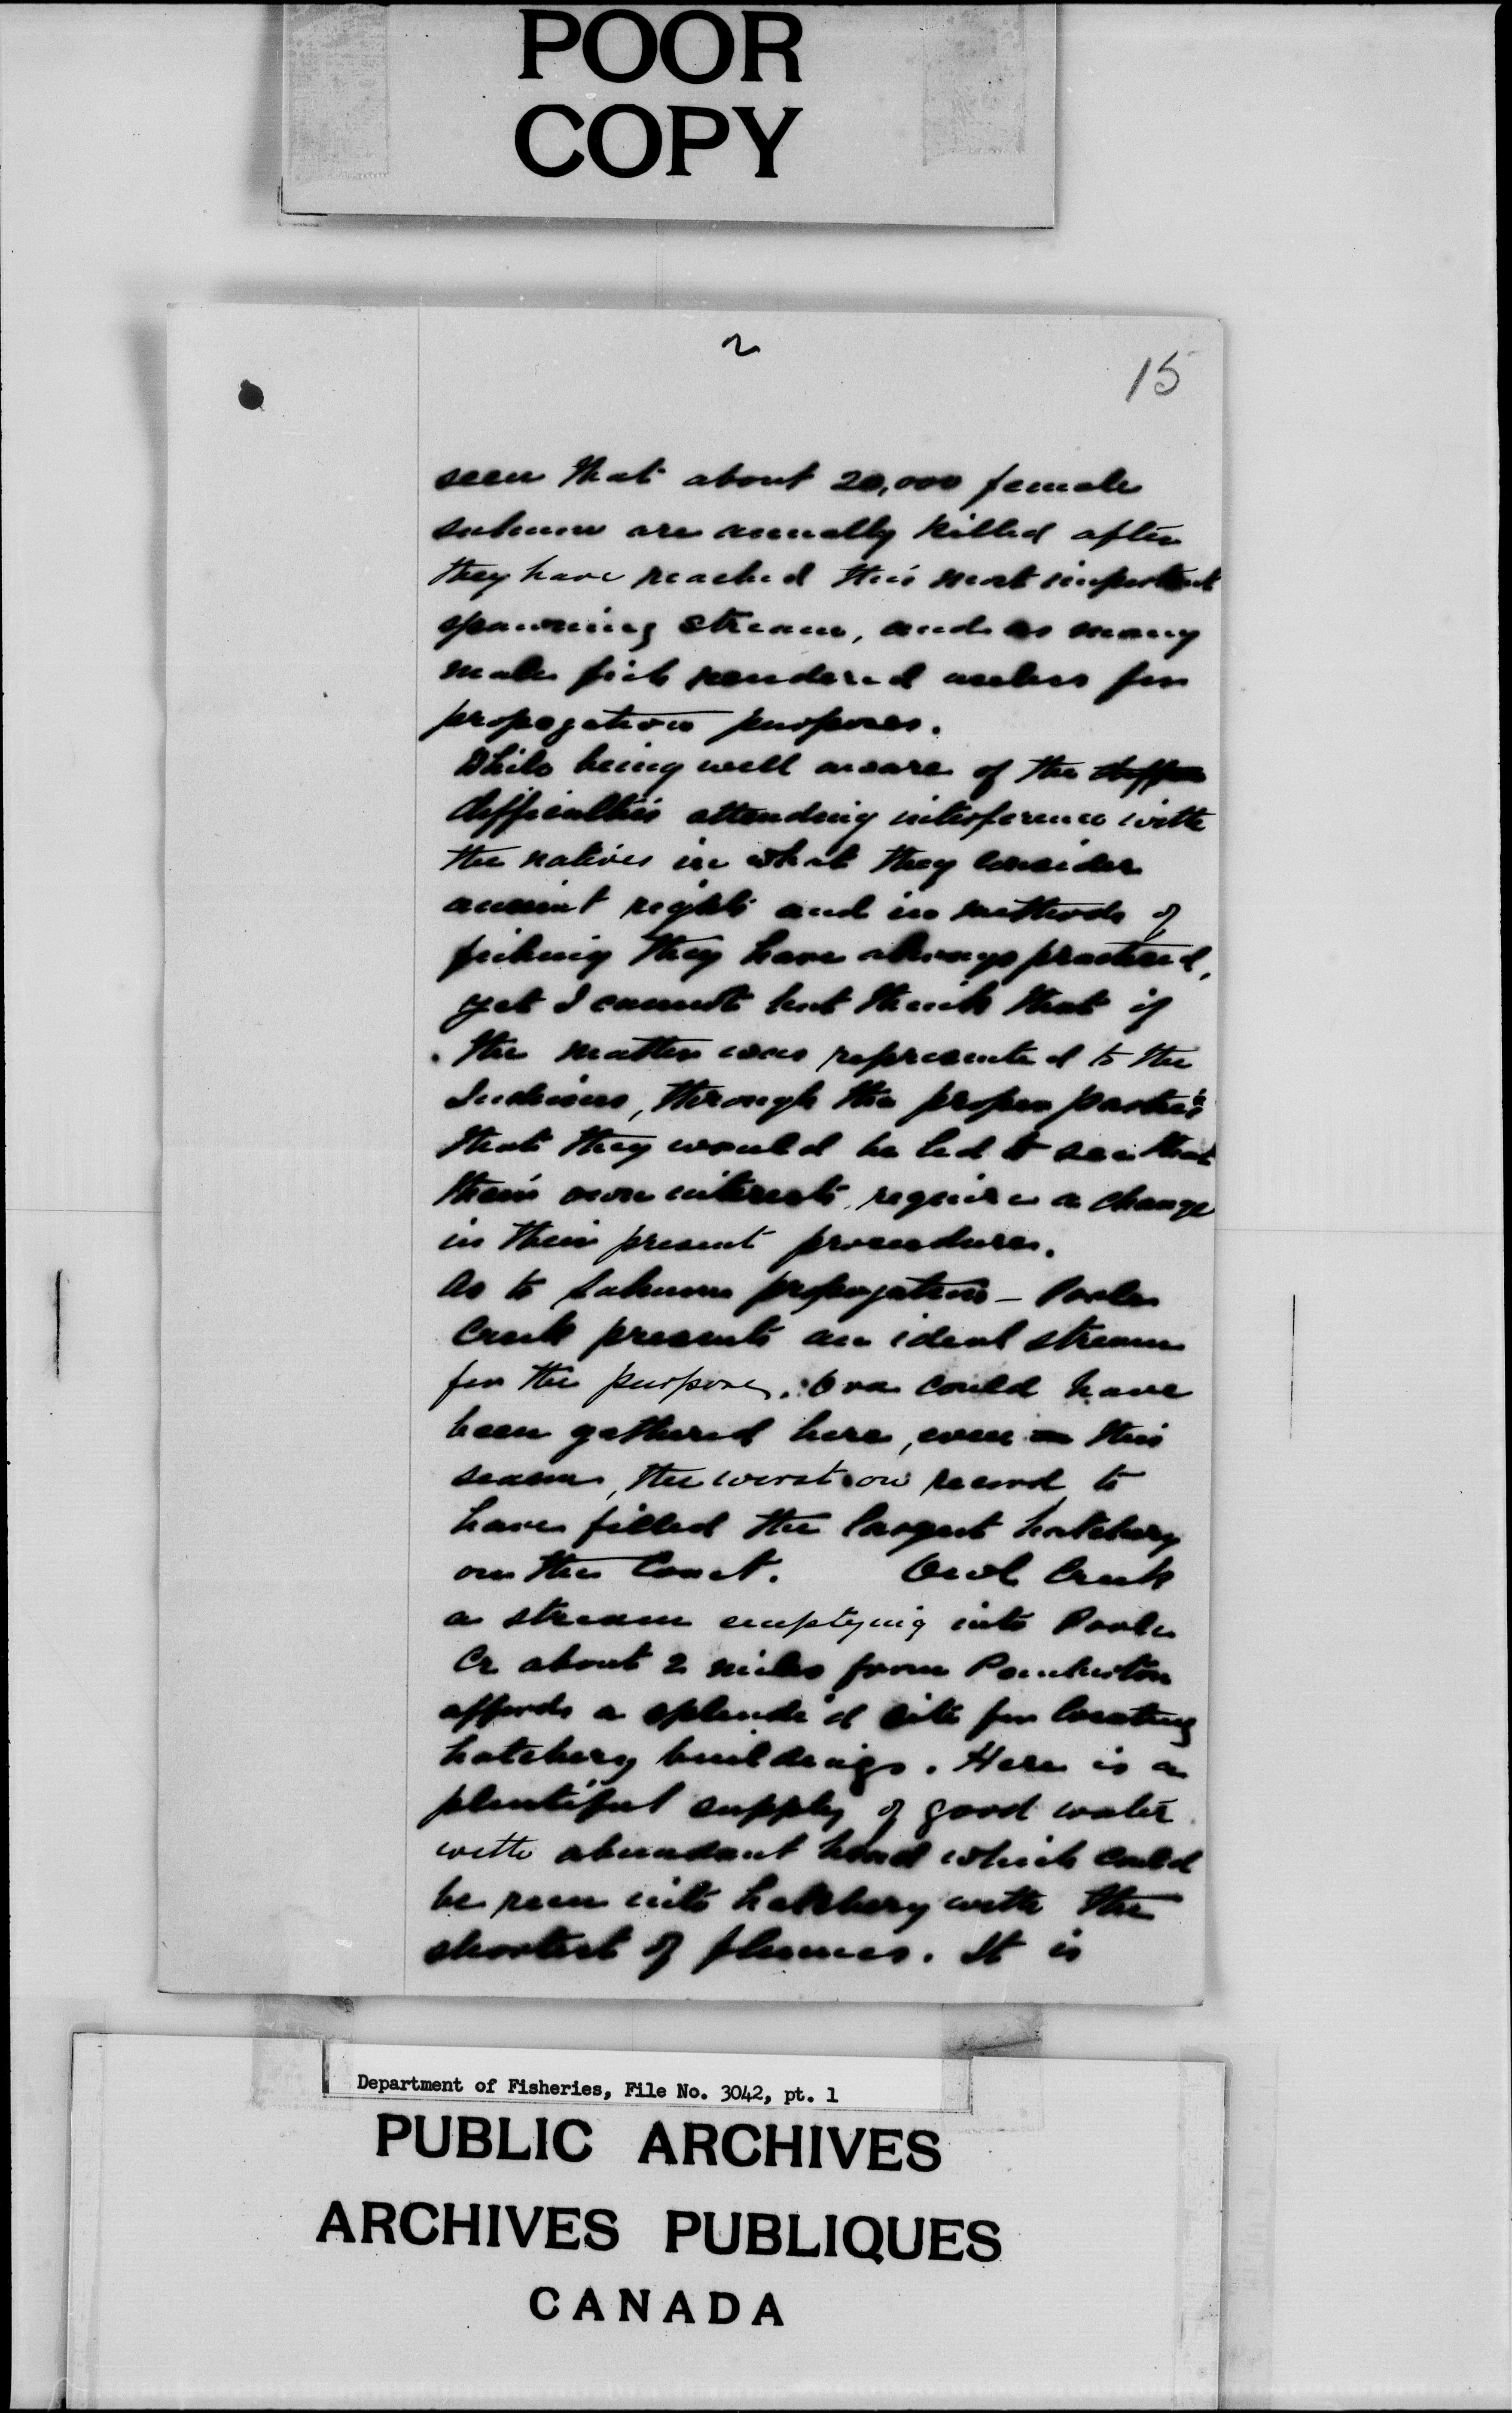 POOR
COPY
2
15
seen that about 20,000 female
salmon are annually killed after
they have reached this most important
spawning stream, and as many
male fish rendered useless for
propagation purposes.
While being well aware of the
difficulties attending interference with
the natives in what they consider
ancient rights and in methods of
fishing they have always practised,
yet I cannot but think that if
the matter was represented to the
Indians, through the proper parties
that they would be led to see that
their own interests require a change
in their present procedure.
As to Salmon propagation - Poole
Creek presents an ideal stream
for the purpose. Ova could have
been gathered here, even in this
season, the worst on record to
have filled the largest hatchery
on the Coast. Owl Creek
a stream emptying into Poole
Cr about 2 miles from Pemberton
affords a splendid site for locating
hatchery buildings. Here is a
plentiful supply of good water
with abundant head which could
be run into hatchery with the
shortest of flumes. It is
Department of Fisheries, File No. 3042, pt. 1
PUBLIC ARCHIVES
ARCHIVES PUBLIQUES
CANADA